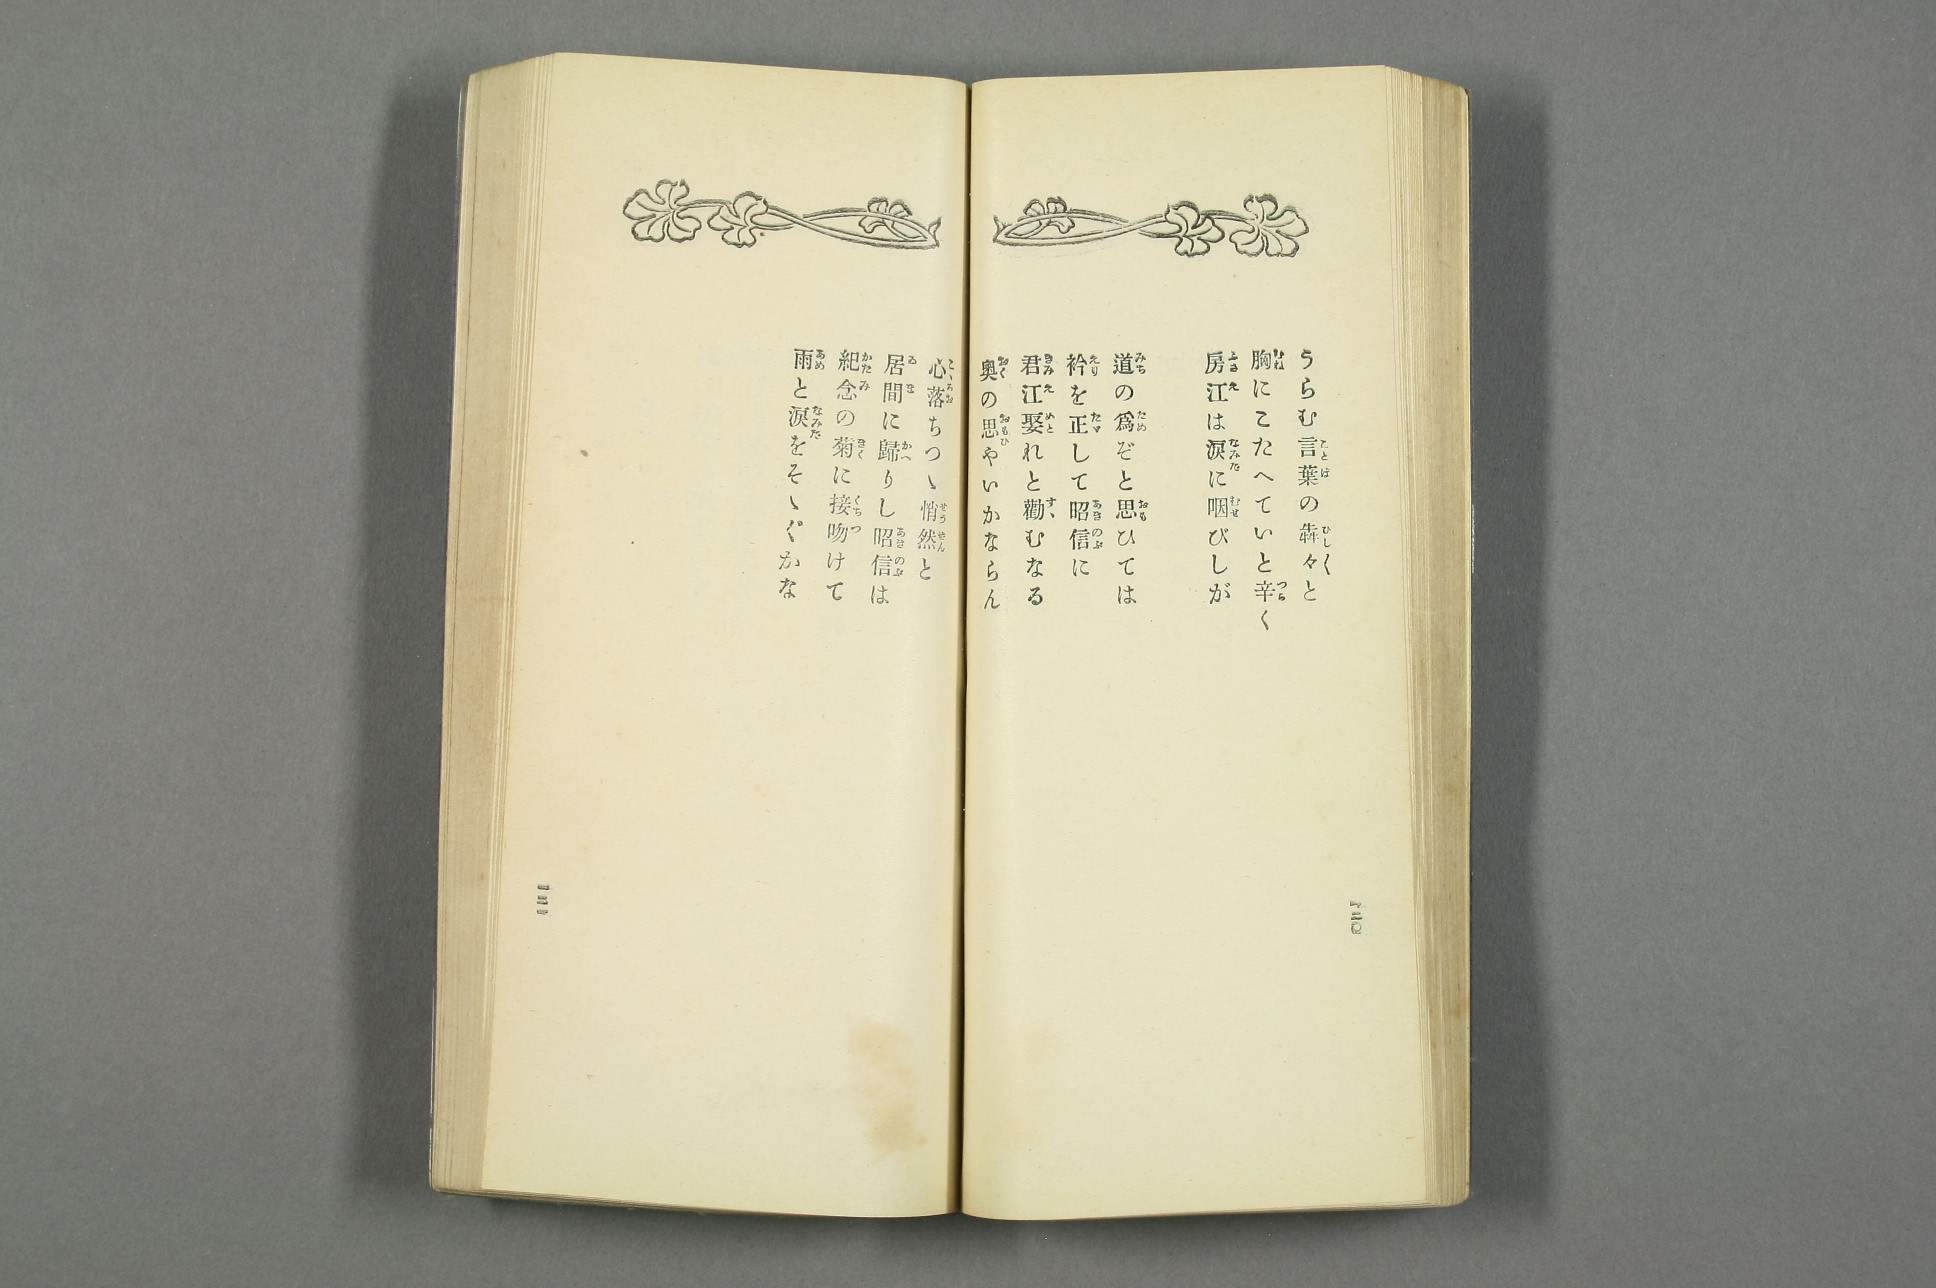 うらむ言葉の犇々と
胸にこたへていと辛く
房江は涙に咽びしが
道の爲ぞと思ひては
衿を正して昭信に
君江娶れと勸むなる
奥の思やいかならん
心落ちつゝ悄然と
居間に歸りし昭信は
紀念の菊に接吻けて
雨と涙をそゝぐかな